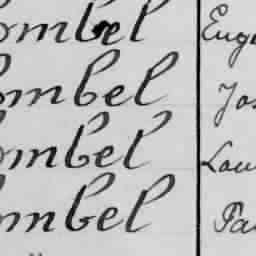 ombel Eug
ombel Jos
ombel Lou
ombel Pa